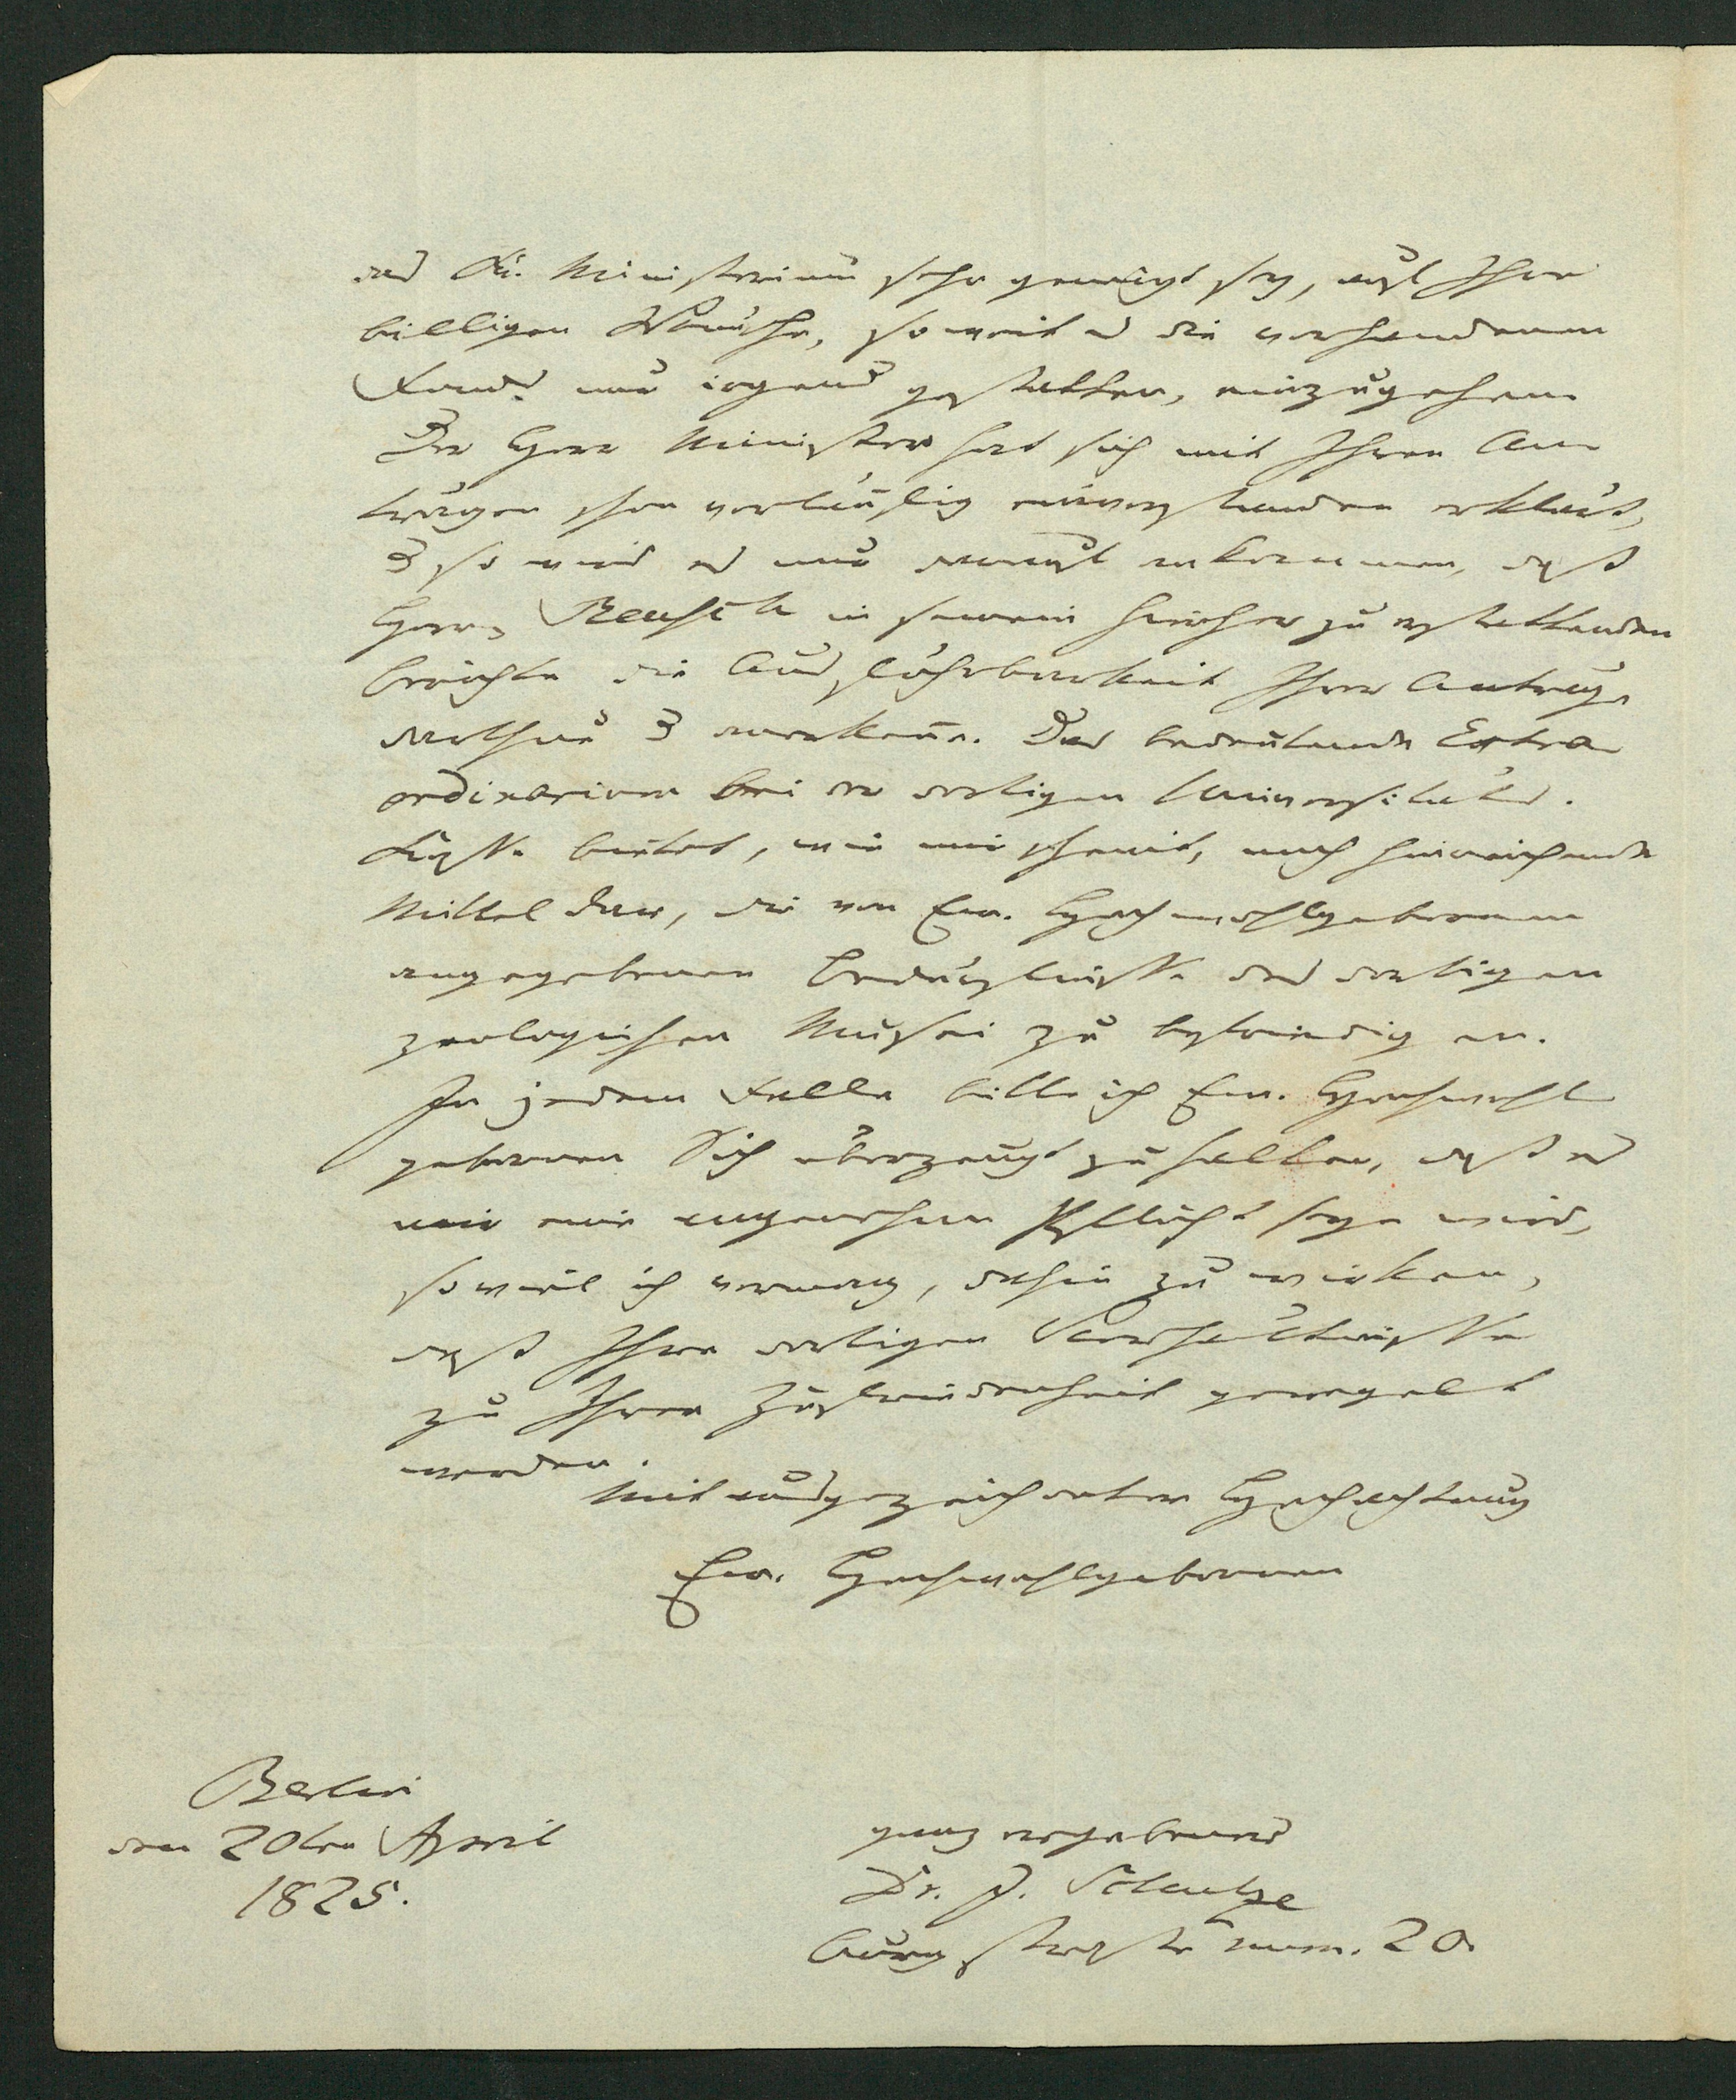 das K. Ministerium sehr geneigt sey, auf Ihre
billigen Wünsche, so weit es die vorhandenen
Fonds nur irgend gestatten, einzugehen.
Der Herr Minister hat sich mit Ihren An
trägen schon vorläufig einverstanden erklärt,
& so wird es nur darauf ankommen, daß
Herr in seinem hierher zu erstattenden
Berichte die Ausführbarkeit Ihrer Anträge
darthue & anerkenne. Das bedeutende Extra
ordinarium bei der dortigen Universitäts.
Kasse bietet, wie mir scheint, auch hinreichende
Mittel dar, die von Ew. Hochwohlgeboren
angegebenen Bedürfnisse des dortigen
zoologischen Musei zu befriedigen.
In jedem Falle bitte ich Ew. Hochwohl
geboren Sich überzeugt zu halten, daß es
mir eine angenehme Pflicht seyn wird,
so viel ich vermag, dahin zu wirken,
daß Ihre dortigen Verhältnisse
zu Ihrer Zufriedenheit geregelt
werden.
Mit ausgezeichneter Hochachtung
Ew. Hochwohlgeboren
Berlin
den 20ten April
1825.
ganz ergebener
Dr. J. Schulze
num. 20.